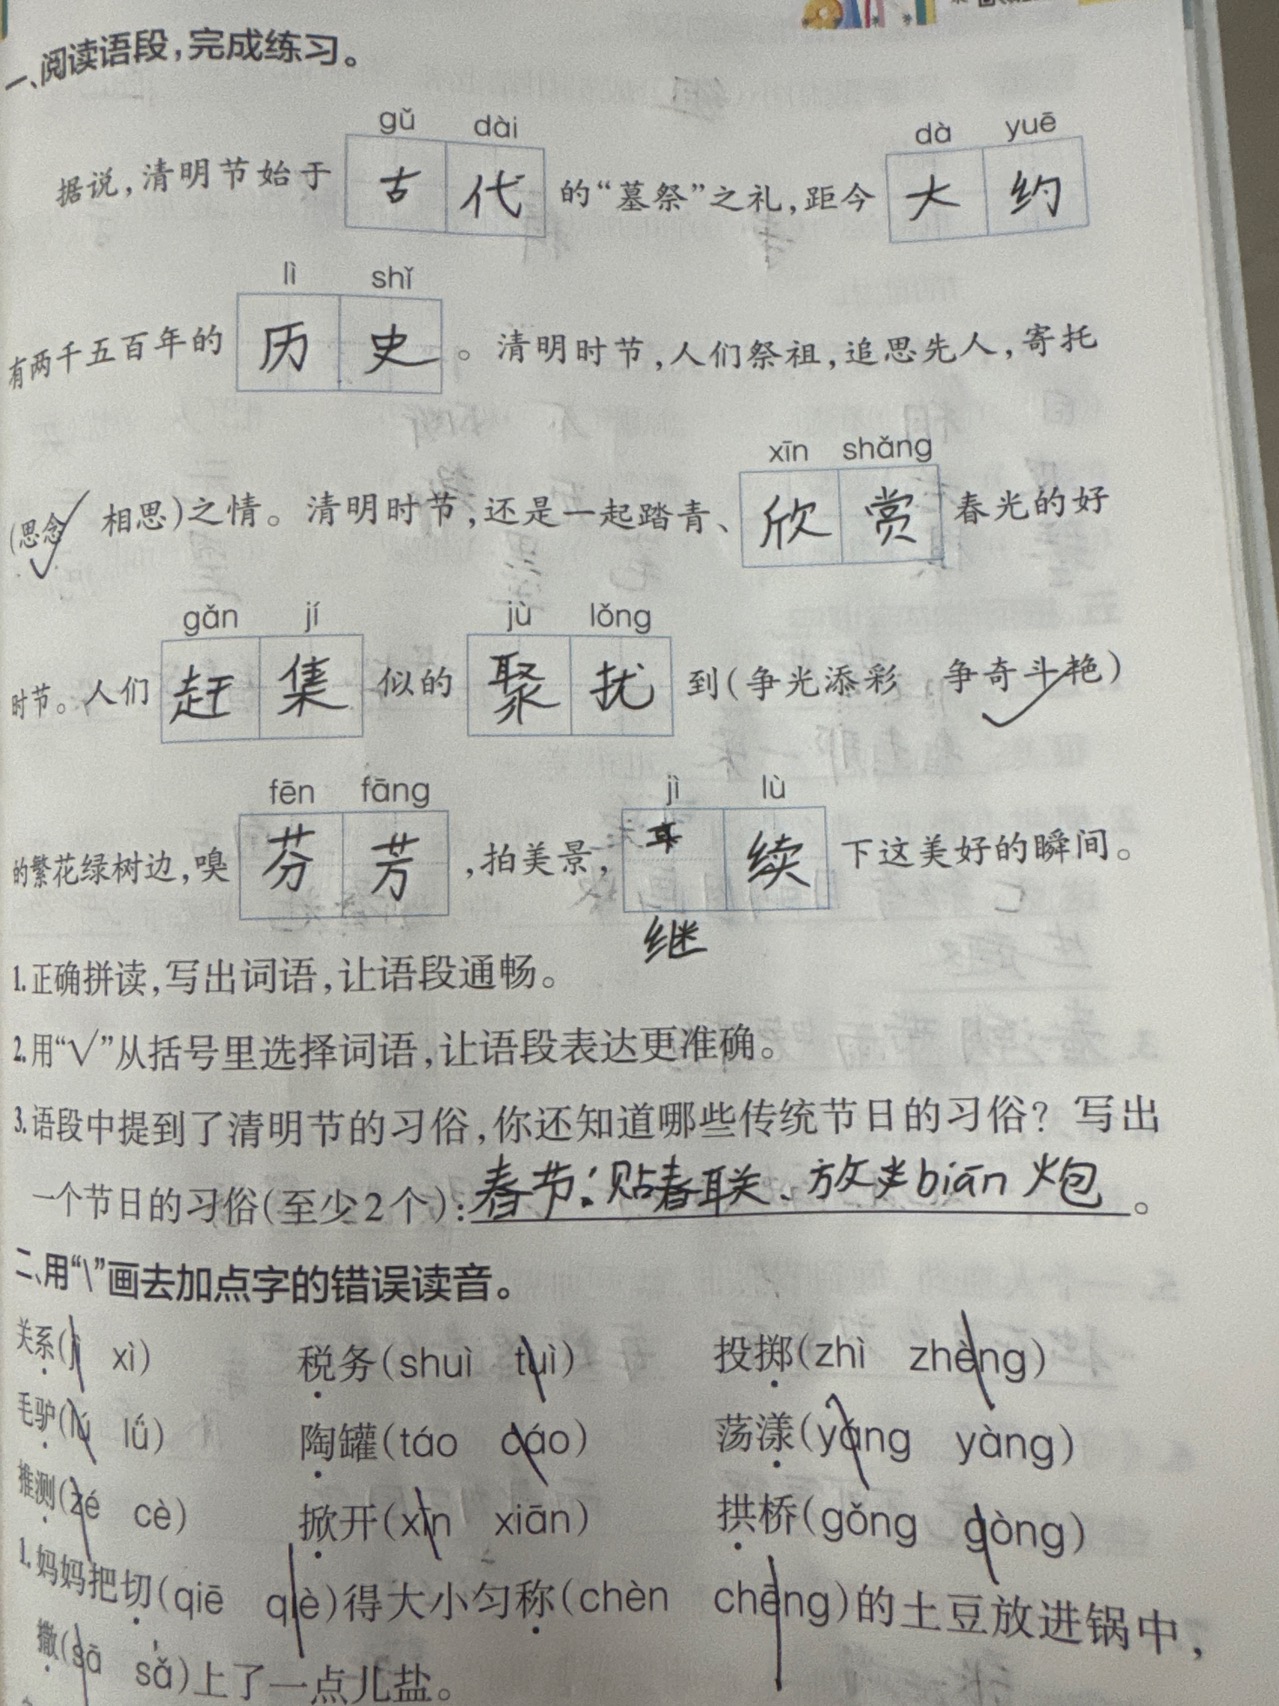 一、阅读语段,完成练习。
gǔ dài dà yuē
据说,清明节始于 古代 的“墓祭”之礼,距今 大约
lì shǐ
有两千五百年的 历史 。清明时节,人们祭祖,追思先人,寄托
xīn shǎng
(思念✓ 相思)之情。清明时节,还是一起踏青、 欣赏 春光的好
gǎn jí jù lǒng
时节。人们 赶集 似的 聚扰 到(争光添彩 争奇斗艳✓)
fēn fāng jì lù
的繁花绿树边,嗅 芬芳 ,拍美景, 续 下这美好的瞬间。
继
1.正确拼读,写出词语,让语段通畅。
2.用“√”从括号里选择词语,让语段表达更准确。
3.语段中提到了清明节的习俗,你还知道哪些传统节日的习俗? 写出
一个节日的习俗(至少2个):春节:贴春联、放biān炮。
二、用“\”画去加点字的错误读音。
关系(jì xì) 税务(shuì tuì) 投掷(zhì zhèng)
毛驴(lú lǘ) 陶罐(táo cáo) 荡漾(yáng yàng)
推测(zé cè) 掀开(xīn xiān) 拱桥(gǒng gòng)
1.妈妈把切(qiē qiè)得大小匀称(chèn chēng)的土豆放进锅中,
撒(sā sǎ)上了一点儿盐。